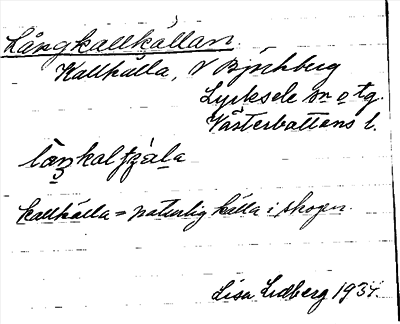 Långkallkällan
Kallkälla, V Björkberg
Lycksele sn o tg.
Västerbottens l.
kallkälla = naturlig källa i skogen.
Lisa Lidberg 1934.